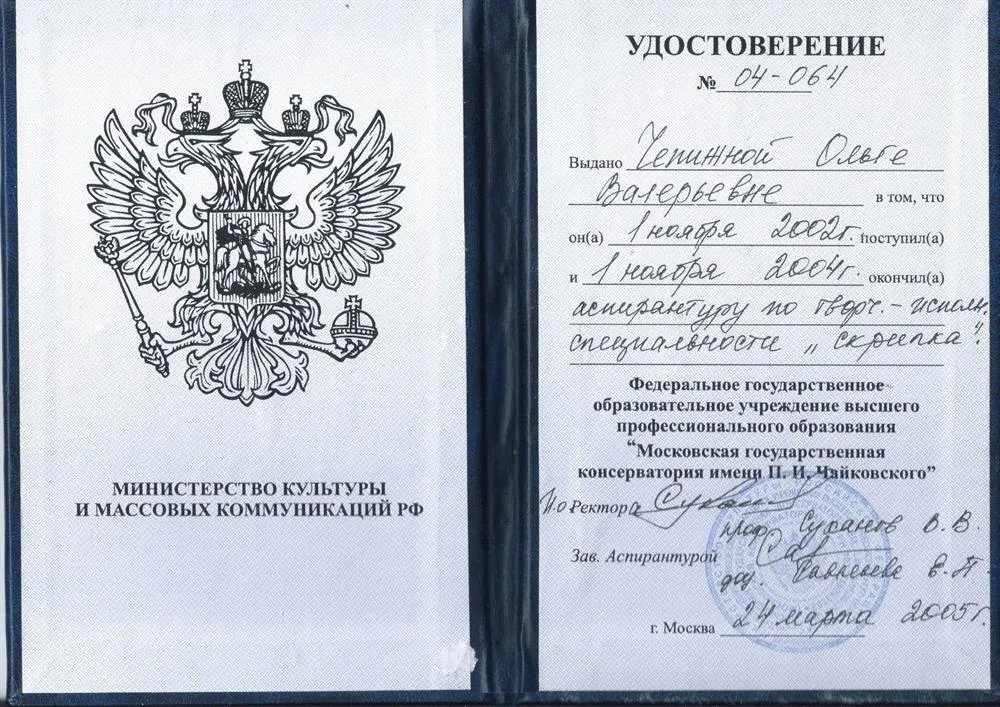 МИНИСТЕРСТВО КУЛЬТУРЫ
И МАССОВЫХ КОММУНИКАЦИЙ РФ
УДОСТОВЕРЕНИЕ
№ 04-064
Выдано Чепижной Ольге
Валерьевне в том, что
он(а) 1 ноября 2002г. поступил(а)
и 1 ноября 2004г. окончил(а)
аспирантуру по творч.-исполн.
специальности „скрипка".
Федеральное государственное
образовательное учреждение высшего
профессионального образования
“Московская государственная
консерватория имени П. И. Чайковского”
И.о. Ректора
проф. Суханов В. В.
Зав. Аспирантурой
доц. Е. П.
г. Москва 24 марта 2005г.